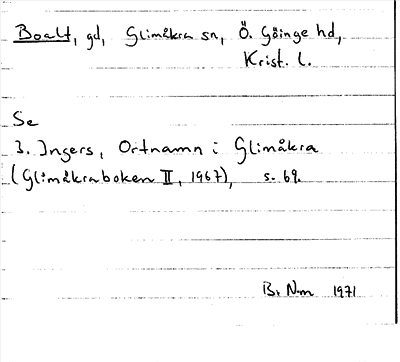 Boalt, gd, Glimåkra sn, Ö. Göinge hd,
Krist. l.
Se
I. Ingers, Ortnamn i Glimåkra
(Glimåkraboken II, 1967), s. 69.
Br. N-m 1971